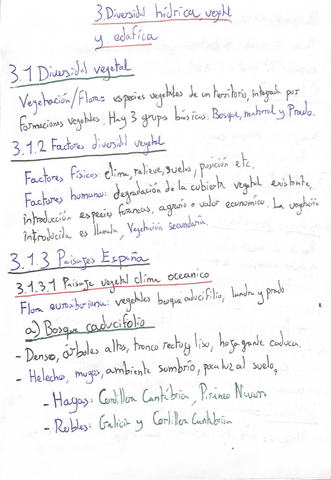 3. Diversidad hídrica, vegetal
y edáfica
3.1 Diversidad vegetal
Vegetación/Flora: especies vegetales de un territorio, integrada por
formaciones vegetales. Hay 3 grupos básicos: Bosque, matorral y Prado.
3.1.2 Factores diversidad vegetal
Factores físicos: clima, relieve, suelos, posición etc.
Factores humanos: degradación de la cubierta vegetal existente,
introducción especies foráneas, agrario o valor económico. La vegetación
introducida es llamada, Vegetación secundaria.
3.1.3 Paisajes España
3.1.3.1 Paisaje vegetal clima oceanico
Flora eurosiberiana: vegetales bosque caducifolio, landa y prado
a) Bosque caducifolio
- Denso, árboles altos, tronco recto y liso, hoja grande caduca.
- Helechos, musgos, ambiente sombrío, poca luz al suelo,
- Hayas: Cordillera Cantábrica, Pirineo Navarro
- Robles: Galicia y Cordillera Cantábrica